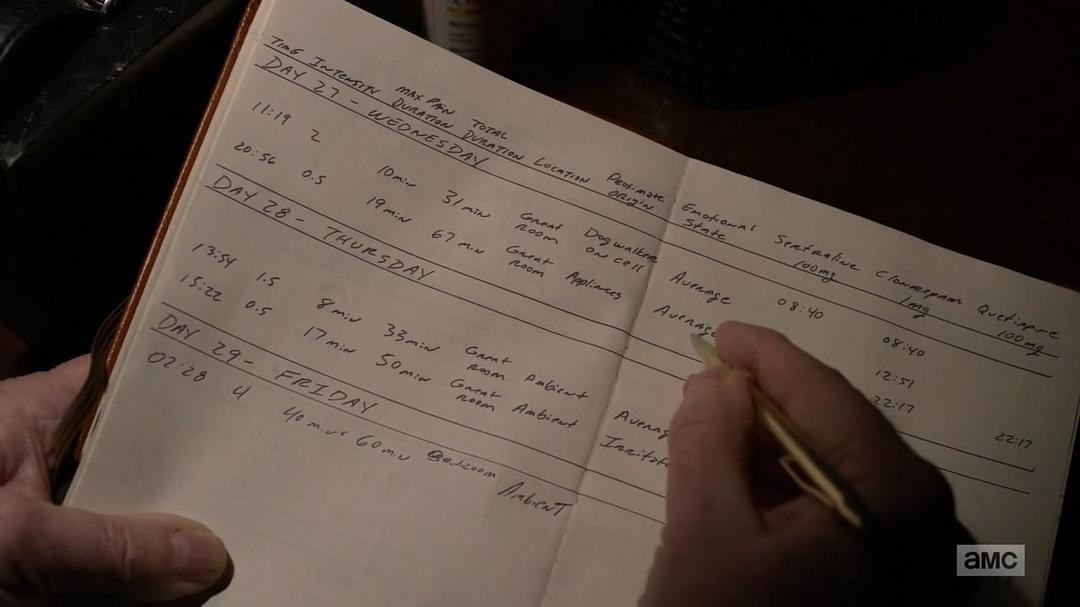 TIME INTENSITY MAX PAIN DURATION TOTAL DURATION LOCATION PROXIMATE ORIGIN EMOTIONAL STATE SERTRALINE 100mg CLONAZEPAM 1mg QUETIAPINE 100mg
DAY 27 - WEDNESDAY
11:19 2 10 min 31 min GREAT ROOM DOGWALKER ON CELL AVERAGE 08:40 08:40
20:56 0.5 19 min 67 min GREAT ROOM APPLIANCES AVERAGE 12:51
22:17 22:17
DAY 28 - THURSDAY
13:54 1.5 8 min 33 min GREAT ROOM AMBIENT
15:22 0.5 17 min 50 min GREAT ROOM AMBIENT
DAY 29 - FRIDAY
02:28 4 40 min 60 min BEDROOM AMBIENT
amc